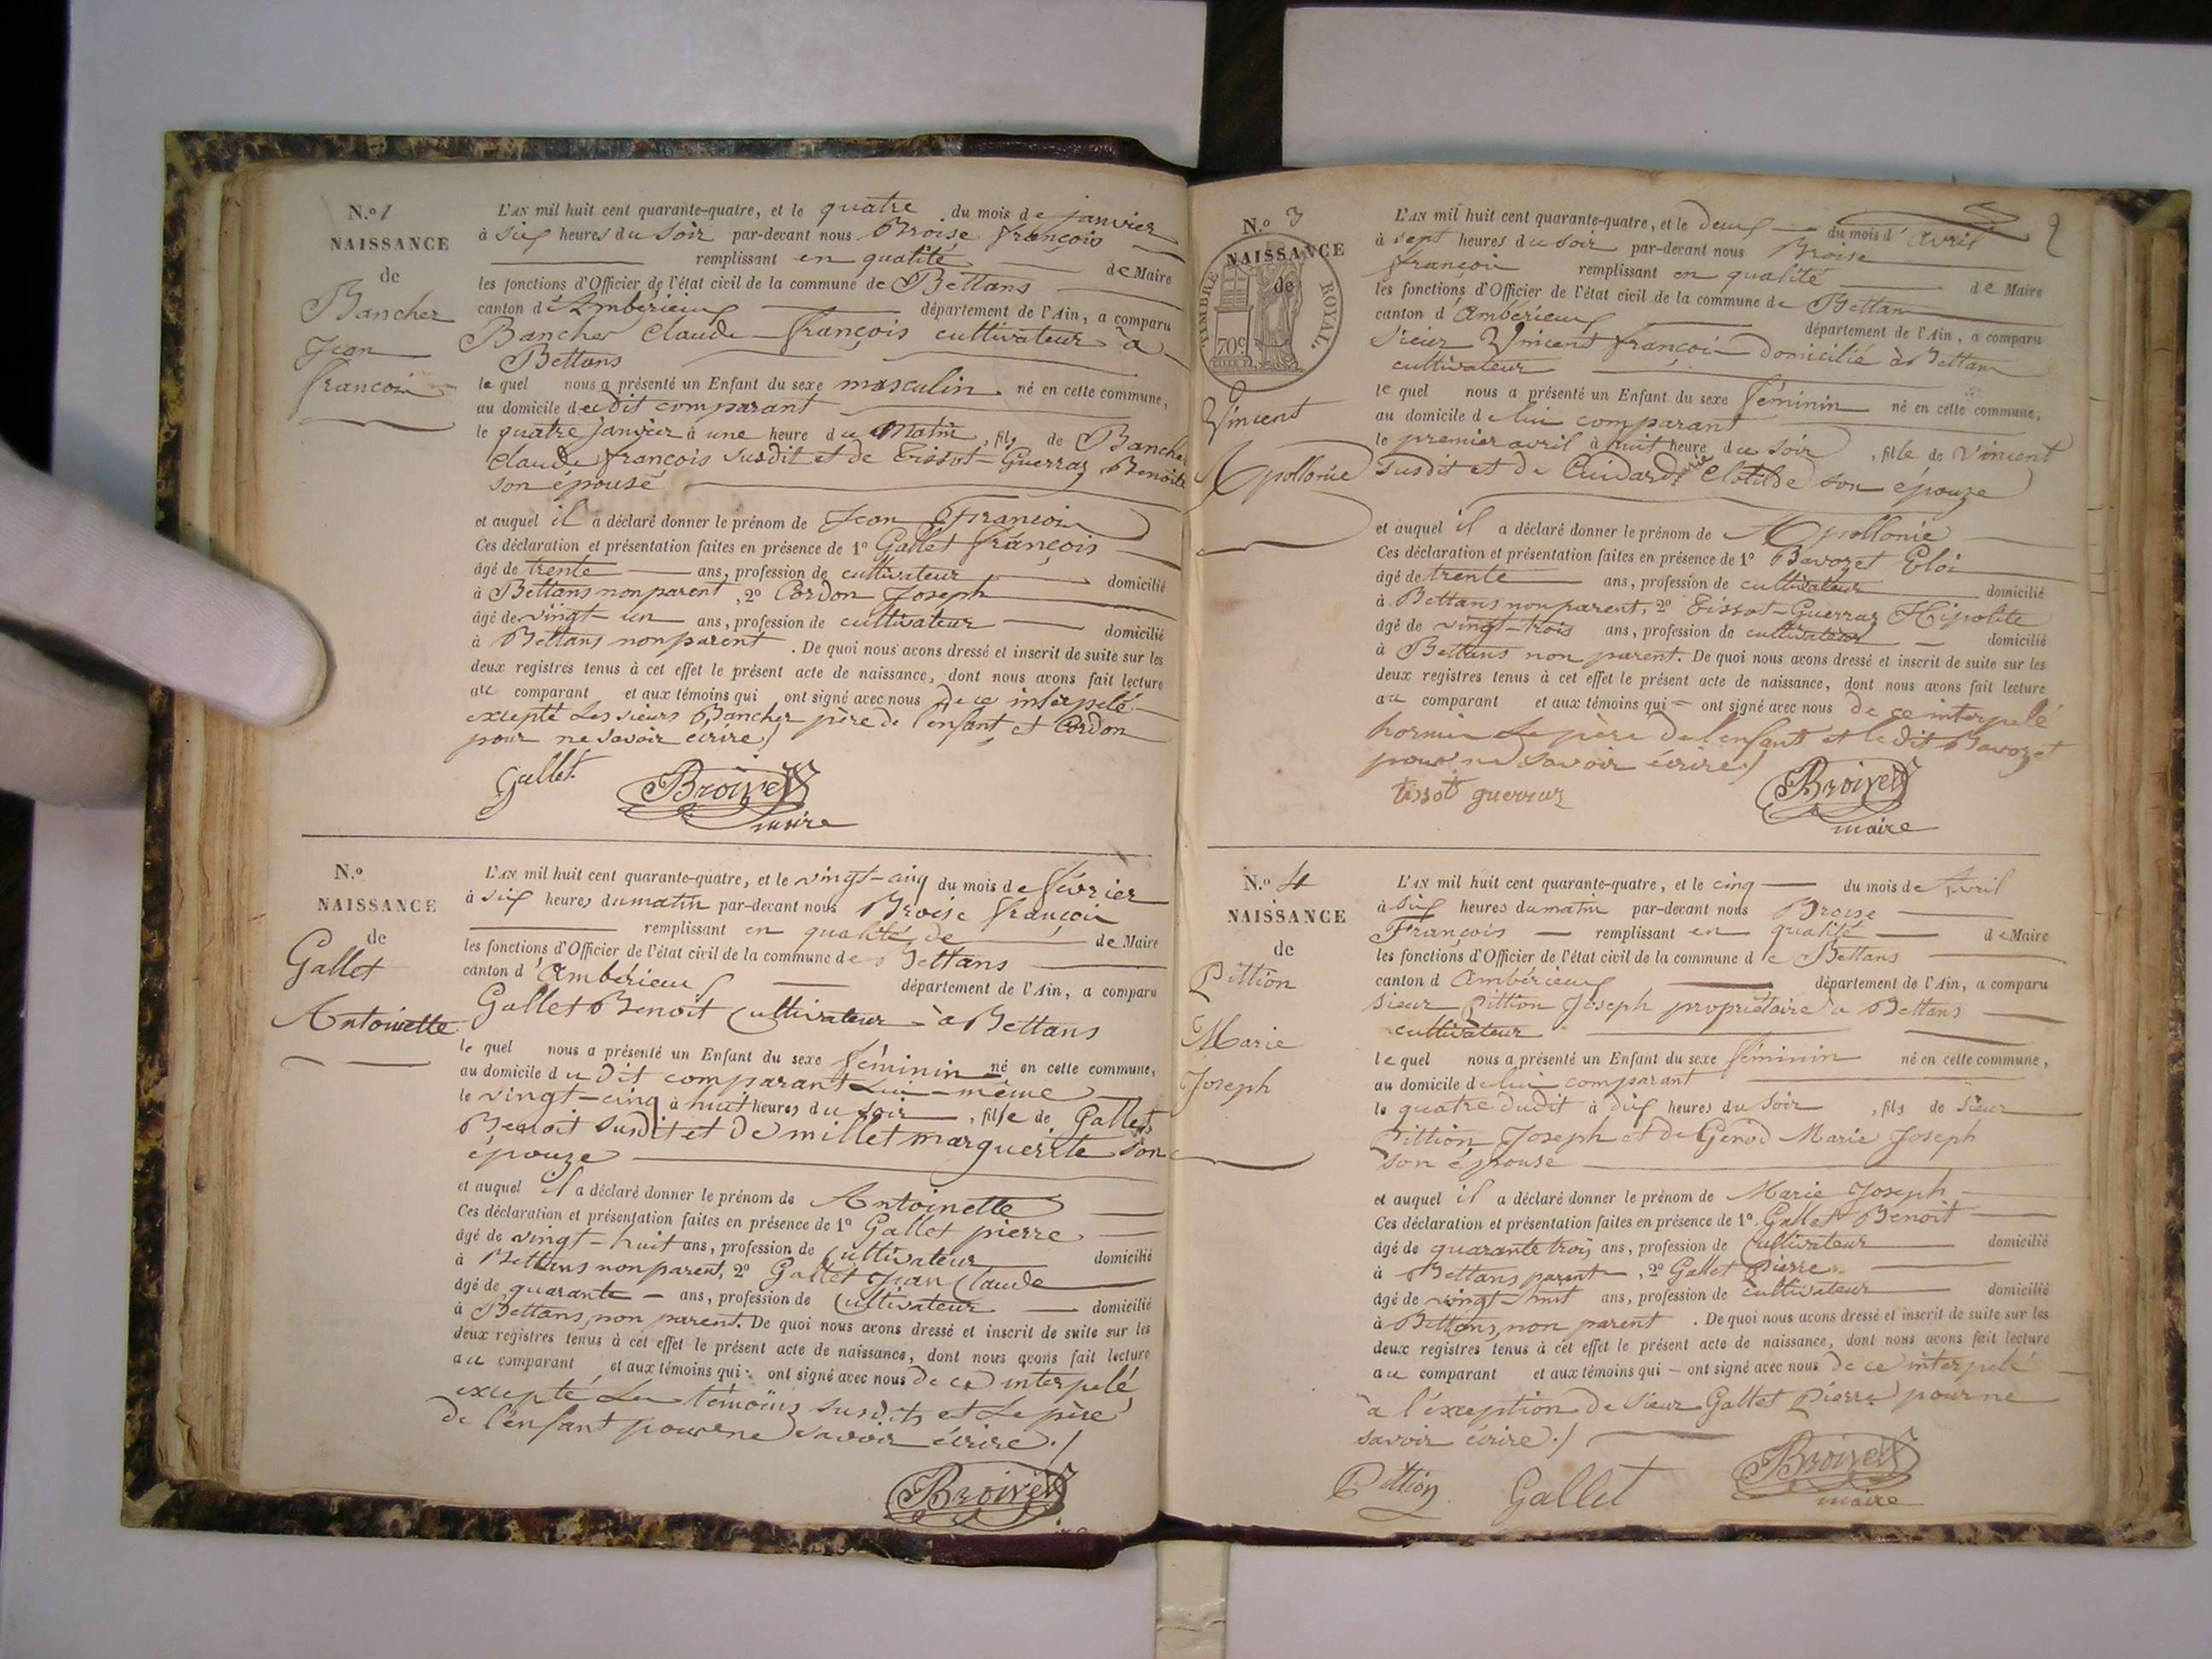 N.º 1
NAISSANCE
de
Bancher
Jean
François
L'AN mil huit cent quarante-quatre, et le quatre du mois de janvier
à six heures du Soir par-devant nous Broise françois
remplissant en qualité de Maire
les fonctions d'Officier de l'état civil de la commune de Bettans
canton d'Ambérieux département de l'Ain, a comparu
Bancher Claude françois cultivateur à
Bettans
lequel nous a présenté un Enfant du sexe masculin né en cette commune,
au domicile dudit comparant
le quatre janvier à une heure du Matin, fils de Bancher
Claude françois susdit et de Tissot-Guerraz Benoite
son épouse
et auquel il a déclaré donner le prénom de Jean François
Ces déclaration et présentation faites en présence de 1º Gallet françois
âgé de trente ans, profession de cultivateur domicilié
à Bettans non parent, 2º Cordon Joseph
âgé de vingt-un ans, profession de cultivateur domicilié
à Bettans non parent. De quoi nous avons dressé et inscrit de suite sur les
deux registres tenus à cet effet le présent acte de naissance, dont nous avons fait lecture
au comparant et aux témoins qui ont signé avec nous de ce interpelé
excepté les sieurs Bancher père de l'enfant et Cordon
pour ne savoir écrire./
Gallet
Broise
maire
N.º
NAISSANCE
de
Gallet
Antoinette
L'AN mil huit cent quarante-quatre, et le vingt-cinq du mois de février
à six heures du matin par-devant nous Broise françois
remplissant en qualité de de Maire
les fonctions d'Officier de l'état civil de la commune de Bettans
canton d'Ambérieux département de l'Ain, a comparu
Gallet Benoit Cultivateur à Bettans
lequel nous a présenté un Enfant du sexe féminin né en cette commune,
au domicile du dit comparant Lui-même
le vingt-cinq à huit heures du soir, fille de Gallet
Benoit susdit et de millet marguerite son
épouze
et auquel il a déclaré donner le prénom de Antoinette
Ces déclaration et présentation faites en présence de 1º Gallet pierre
âgé de vingt-huit ans, profession de Cultivateur domicilié
à Bettans non parent, 2º Gallet Jean Claude
âgé de quarante ans, profession de Cultivateur domicilié
à Bettans, non parent. De quoi nous avons dressé et inscrit de suite sur les
deux registres tenus à cet effet le présent acte de naissance, dont nous avons fait lecture
au comparant et aux témoins qui ont signé avec nous de ce interpelé
excepté Les témoins susdits et Le père
de l'enfant pour ne savoir écrire./
Broise
N.º 3
NAISSANCE
de
TIMBRE ROYAL
70c
Vincent
Apollonie
2
L'AN mil huit cent quarante-quatre, et le deux du mois d'avril
à sept heures du soir par-devant nous Broise
françois remplissant en qualité de Maire
les fonctions d'Officier de l'état civil de la commune de Bettans
canton d'Ambérieux département de l'Ain, a comparu
Sieur Vincent françois domicilié à Bettans
cultivateur
lequel nous a présenté un Enfant du sexe féminin né en cette commune,
au domicile de lui comparant
le premier avril à huit heure du soir, fille de Vincent
susdit et de Cuidard Clotilde son épouze
et auquel il a déclaré donner le prénom de Apollonie
Ces déclaration et présentation faites en présence de 1º Bavozet Eloi
âgé de trente ans, profession de cultivateur domicilié
à Bettans non parent, 2º Tissot-Guerraz Hipolite
âgé de vingt-trois ans, profession de cultivateur domicilié
à Bettans non parent. De quoi nous avons dressé et inscrit de suite sur les
deux registres tenus à cet effet le présent acte de naissance, dont nous avons fait lecture
au comparant et aux témoins qui ont signé avec nous de ce interpelé
hormis Le père de l'enfant et le dit Bavozet
pour ne savoir écrire./
tissot guerraz
Broise
maire
N.º 4
NAISSANCE
de
Pittion
Marie
Joseph
L'AN mil huit cent quarante-quatre, et le cinq du mois de Avril
à six heures du matin par-devant nous Broise
François remplissant en qualité de Maire
les fonctions d'Officier de l'état civil de la commune de Bettans
canton d'Ambérieux département de l'Ain, a comparu
sieur Pittion Joseph propriétaire à Bettans
cultivateur
lequel nous a présenté un Enfant du sexe féminin né en cette commune,
au domicile de lui comparant
le quatre dudit à dix heures du soir, fils de Sieur
Pittion Joseph et de Genod Marie Joseph
son épouse
et auquel il a déclaré donner le prénom de Marie Joseph
Ces déclaration et présentation faites en présence de 1º Gallet Benoit
âgé de quarante trois ans, profession de Cultivateur domicilié
à Bettans parent, 2º Gallet Pierre
âgé de vingt-huit ans, profession de cultivateur domicilié
à Bettans, non parent. De quoi nous avons dressé et inscrit de suite sur les
deux registres tenus à cet effet le présent acte de naissance, dont nous avons fait lecture
au comparant et aux témoins qui ont signé avec nous de ce interpelé
à l'exception de sieur Gallet Pierre pour ne
savoir écrire./
Pittion
Gallet
Broise
maire